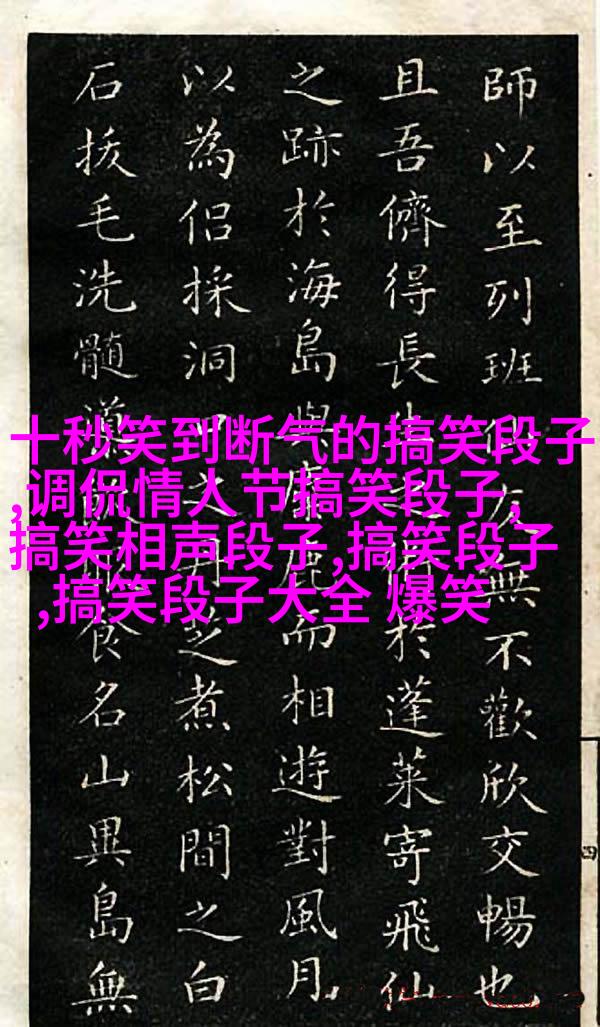 師以至列班仙友無不歡欣交暢也
且吾儕得長生於蓬萊寄飛仙
之跡於海島與麋鹿而相遊對風月
以為侶採洞口之丹芝煮松間之白
石拔毛洗髓食名山異島無
十秒笑到断气的搞笑段子
,调侃情人节搞笑段子,
搞笑相声段子,搞笑段子
,搞笑段子大全 爆笑